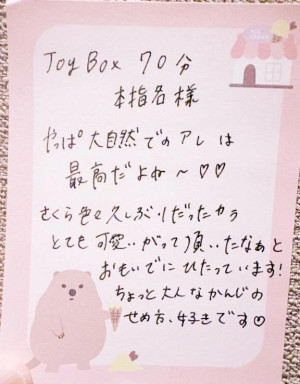 Joy Box 70分
本指名様
やっぱ大自然でのアレは
最高だよね～♡♡
さくら色々久しぶりだったから
とても可愛いがって頂いたなぁと
おもいでにひたっています!
ちょっと大人なかんじの
せめ方、好きです♡